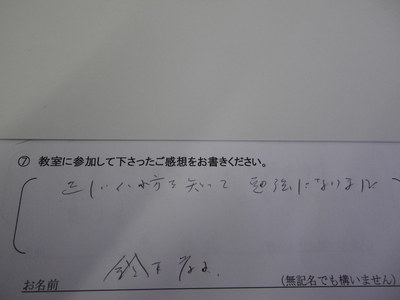 ⑦ 教室に参加して下さったご感想をお書きください。
正しい 方を知って 勉強になりました
お名前 (無記名でも構いません)